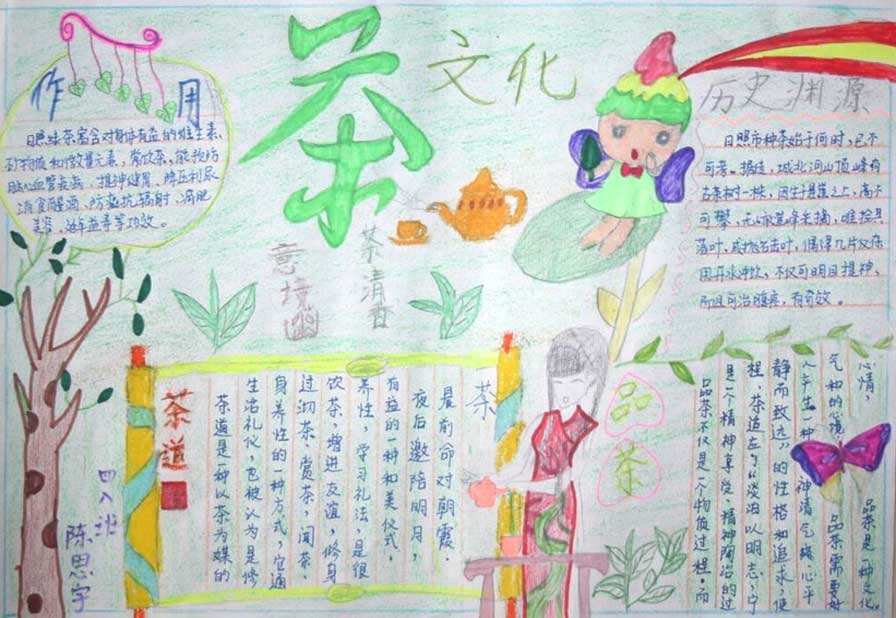 茶文化
作用
日照绿茶富含对身体有益的维生素、
矿物质和微量元素,常饮茶,能预防
脑心血管疾病,提神健胃、降压利尿
消食醒酒、防癌抗辐射、减肥
美容、延年益寿等功效。
意境幽
茶清香
历史渊源
日照市种茶始于何时,已不
可考。据传,城北河山顶峰有
古茶树一株,因生于悬崖之上,高不
可攀,无人敢登峰采摘,唯拾其
落叶,或抛石击叶,偶得几片
开水冲饮,不仅可明目提神,
而且可治腹疾,有奇效。
茶道
茶道是一种以茶为媒的
生活礼仪,也被认为是修
身养性的一种方式,它通
过沏茶、赏茶、闻茶、
饮茶,增进友谊,修身
养性,学习礼法,是很
有益的一种和美仪式。
夜后邀陪明月,
晨前命对朝霞。
茶
品茶
品茶不仅是一个物质过程,而
是一个精神享受、精神陶冶的过
程,茶道在乎“淡泊以明志,宁
静而致远”的性格和追求,使
人产生一种神清气爽、心平
气和的心境。品茶需要好
心情,品茶是一种文化。
四八班
陈思宇